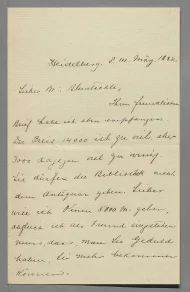 Heidelberg d. 14. März 1882.
Lieber Mr.
Ihren freundlichen
Brief habe ich eben empfangen.
Der Preis 14000 ist zu viel aber
7000 dagegen viel zu wenig.
Sie dürfen die Bibliothek nicht
dem Antiquar geben. Lieber
will ich Ihnen 8000 M. geben,
ich als Freund
muss, dass man Sie Geduld
haben, bis mehr
können.